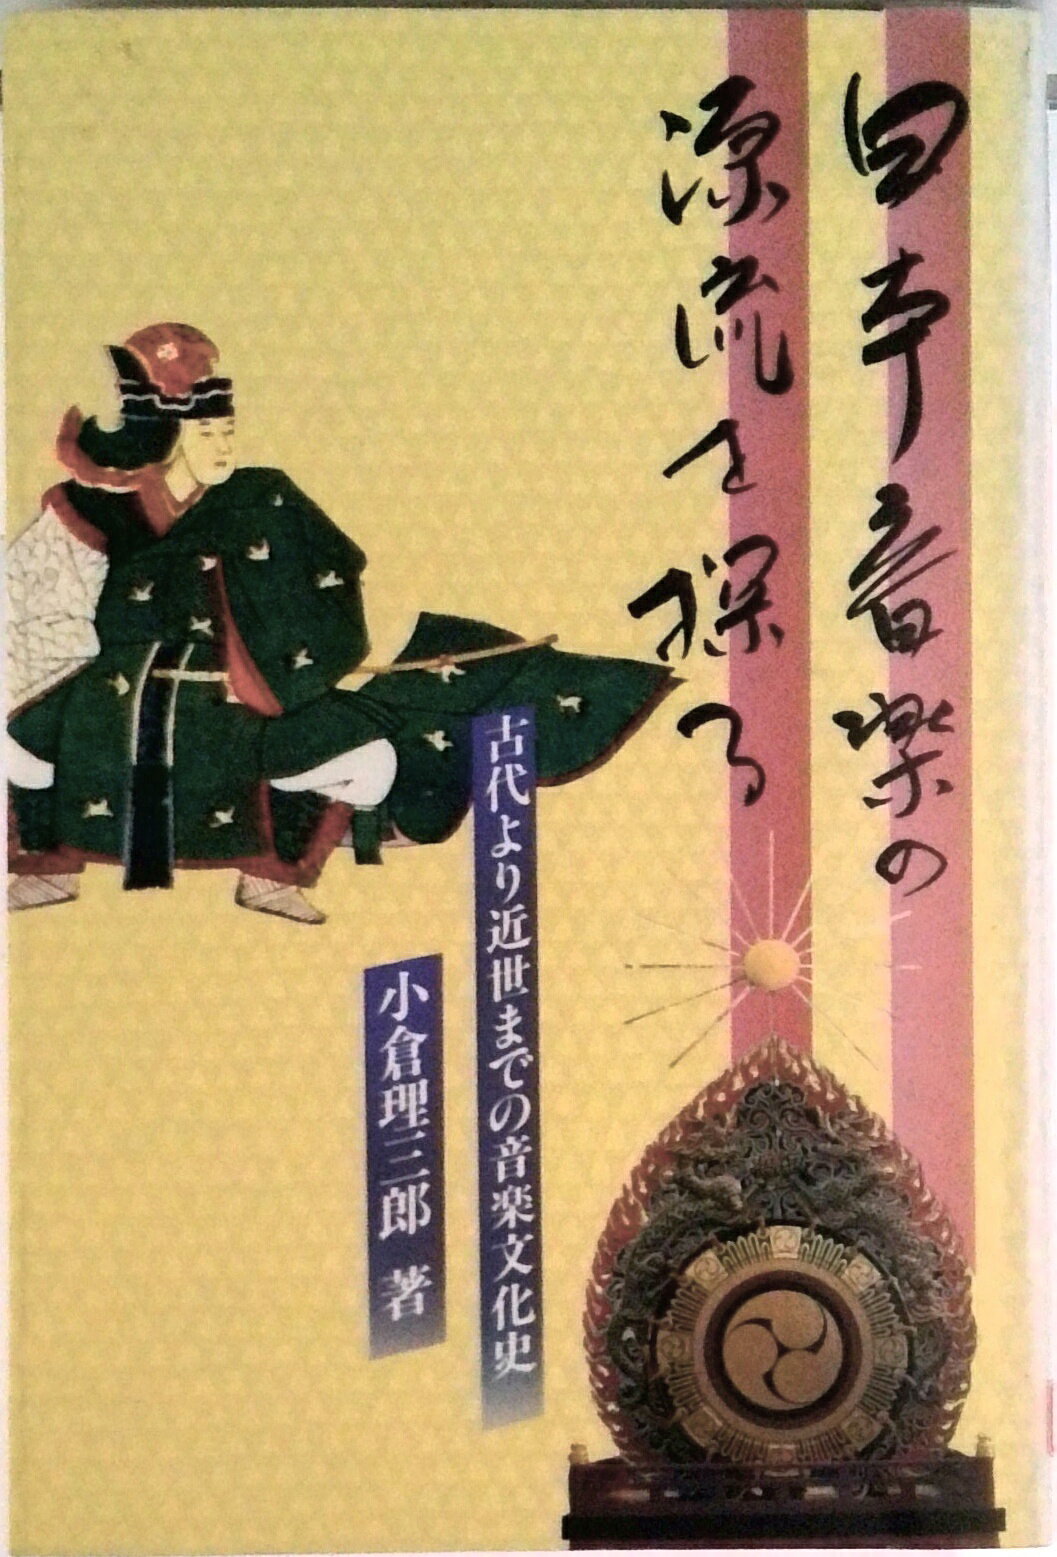 日本音楽の
源流を探る
古代より近世までの音楽文化史
小倉理三郎 著